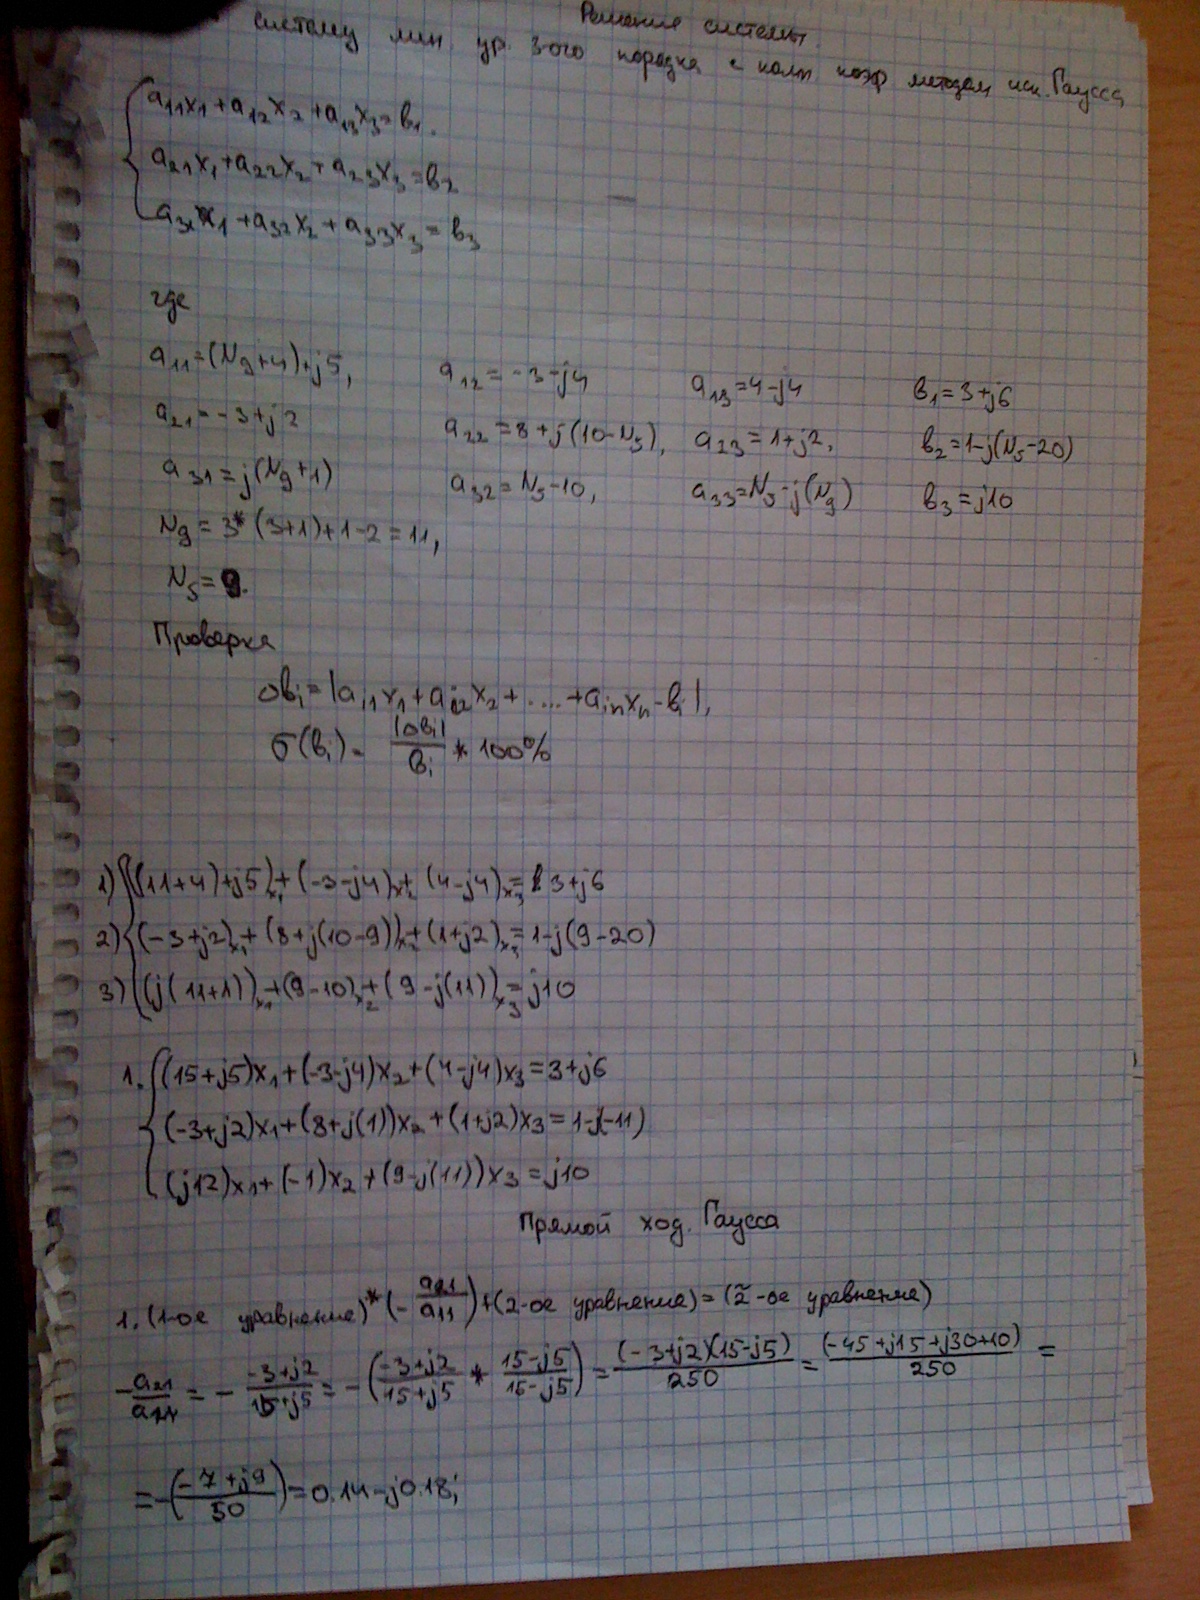 Решение системы.
систему лин. ур. 3-ого порядка с комп коэф методом иск. Гаусса
a₁₁x₁+a₁₂x₂+a₁₃x₃=b₁.
a₂₁x₁+a₂₂x₂+a₂₃x₃=b₂
a₃₁x₁+a₃₂x₂+a₃₃x₃=b₃
где
a₁₁=(Ng+4)+j5, a₁₂=-3-j4 a₁₃=4-j4 b₁=3+j6
a₂₁=-3+j2 a₂₂=8+j(10-N₅), a₂₃=1+j2, b₂=1-j(N₅-20)
a₃₁=j(Ng+1) a₃₂=N₅-10, a₃₃=N₅-j(Ng) b₃=j10
Ng=3*(3+1)+1-2=11,
N₅=9.
Проверка
∆bᵢ=|aᵢ₁x₁+aᵢ₂x₂+....+aᵢₙxₙ-bᵢ|,
σ(bᵢ)= |∆bᵢ|/bᵢ * 100%
1) ((11+4)+j5)x₁+(-3-j4)x₂+(4-j4)x₃=3+j6
2) (-3+j2)x₁+(8+j(10-9))x₂+(1+j2)x₃=1-j(9-20)
3) (j(11+1))x₁+(9-10)x₂+(9-j(11))x₃=j10
1. (15+j5)x₁+(-3-j4)x₂+(4-j4)x₃=3+j6
(-3+j2)x₁+(8+j(1))x₂+(1+j2)x₃=1-j(-11)
(j12)x₁+(-1)x₂+(9-j(11))x₃=j10
Прямой ход. Гаусса
1. (1-ое уравнение)*(-a₂₁/a₁₁)+(2-ое уравнение)=(2̃-ое уравнение)
-a₂₁/a₁₁ = - (-3+j2)/(15+j5) = -((-3+j2)/(15+j5) * (15-j5)/(15-j5)) = (-3+j2)(15-j5)/250 = (-45+j15+j30+10)/250 =
=-((-7+j9)/50)=0.14-j0.18;